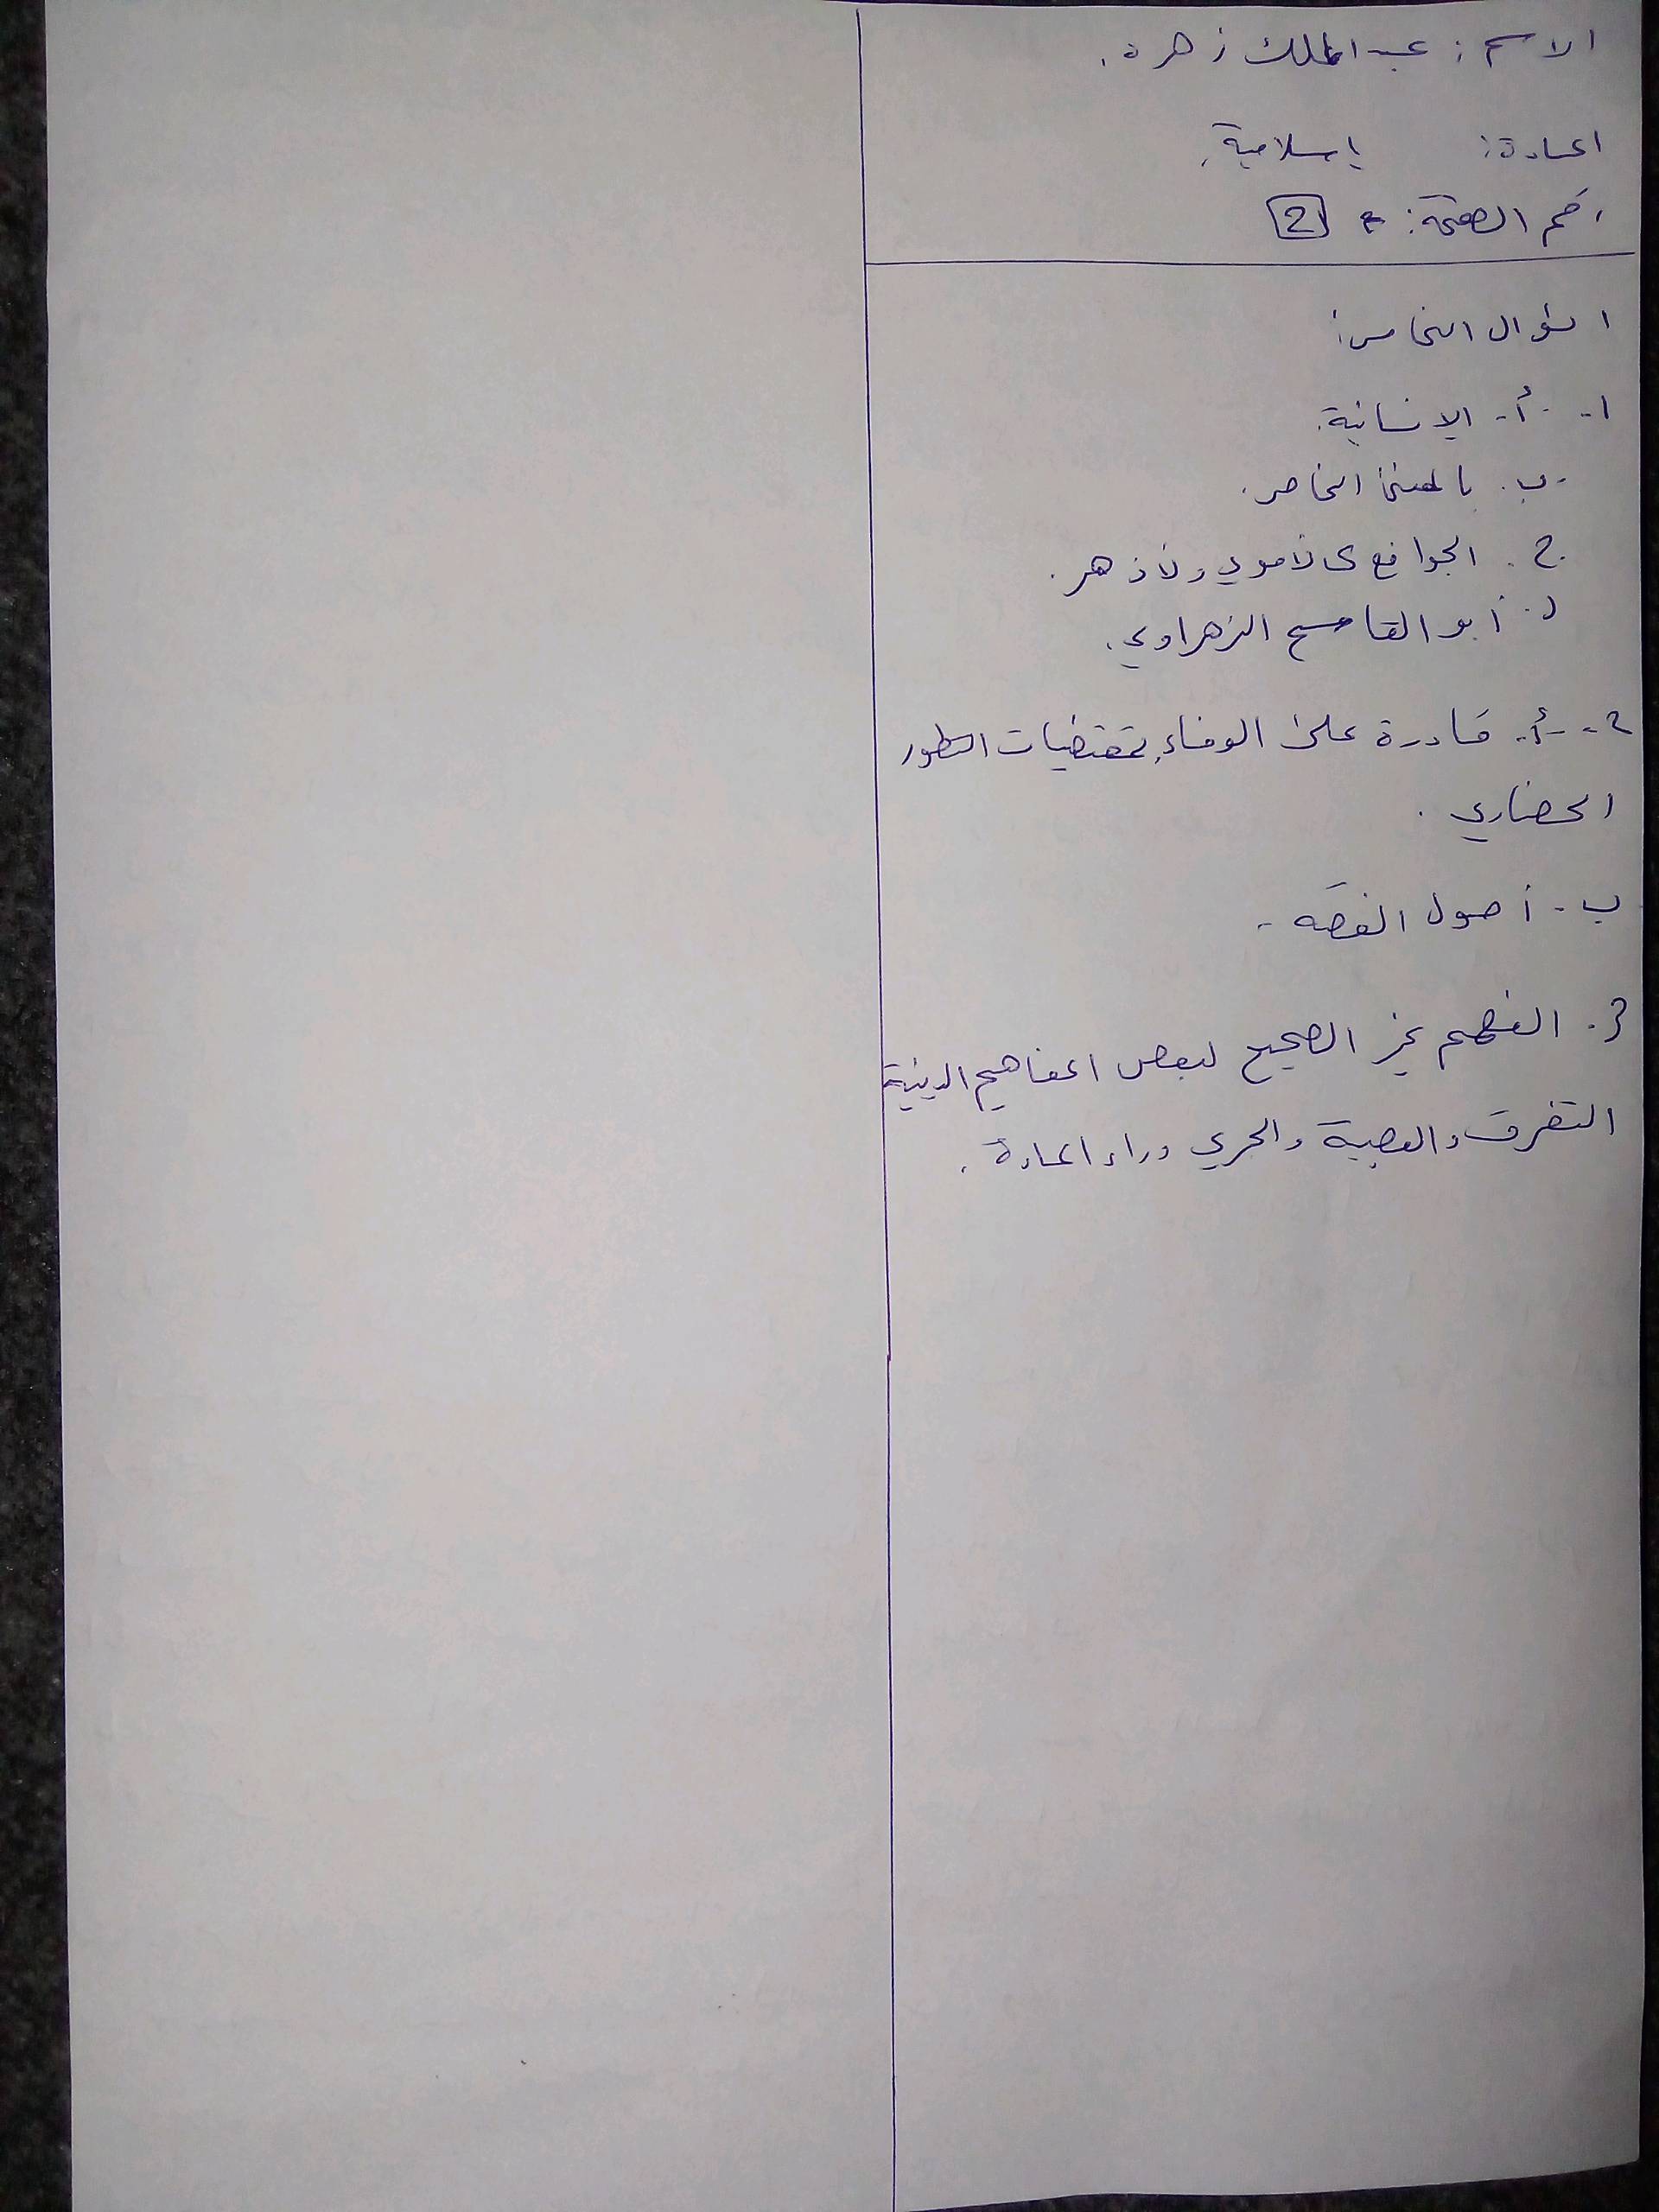 الاسم : عبد الملك زهرة.
المادة: إسلامية.
رقم الصفحة: 2
السؤال الخامس:
1- أ- الإنسانية.
ب. بالمعنى الخاص.
ج. الجوامع كالأموي والأزهر.
د. أبو القاسم الزهراوي.
2- أ- قادرة على الوفاء بمقتضيات التطور
الحضاري .
ب - أصول الفقه -
3. الفهم غير الصحيح لبعض المفاهيم الدينية
التفرق والعصبية والجري وراء المادة .